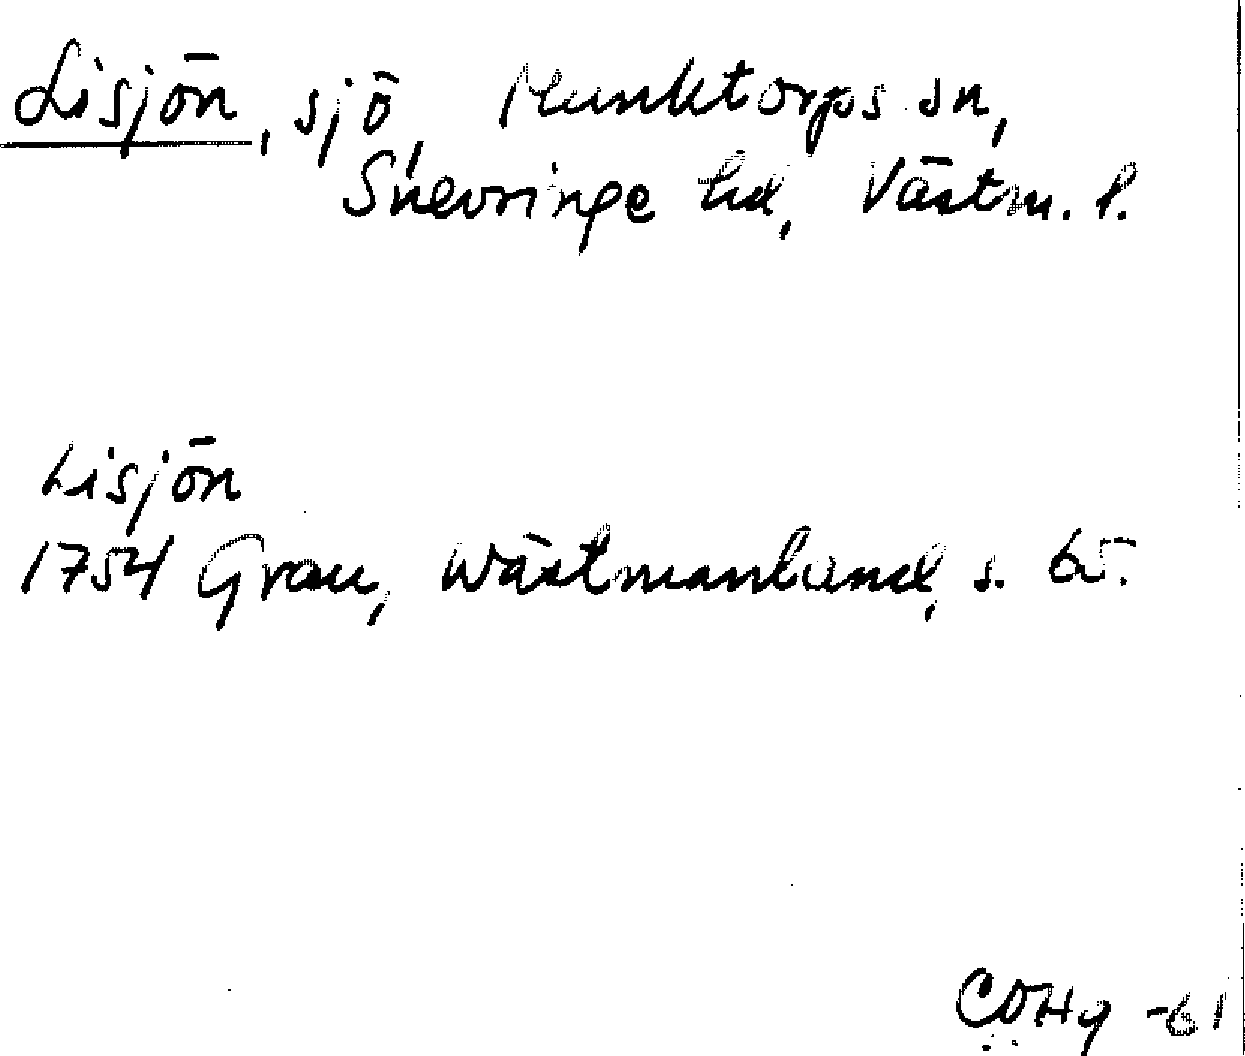 Lisjön, sjö, Munktorps sn,
Snevringe hd, Västm. l.
Lisjön
1754 Grau, Wästmanland, s. 65.
COHg -61